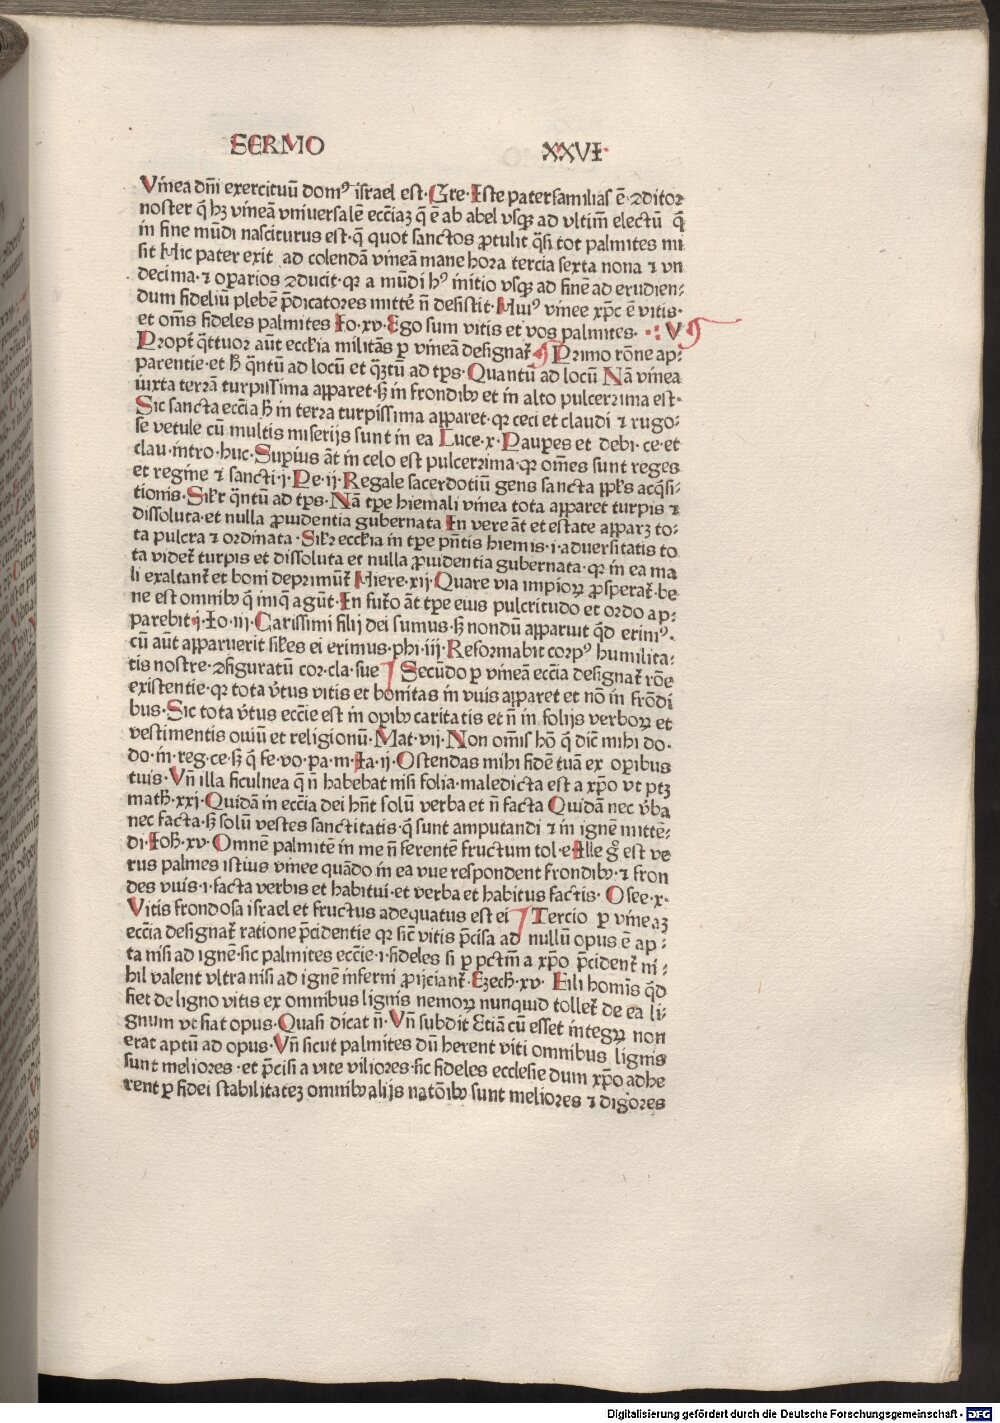 SERMO XXVI
Vinea dn̄i exercituū domꝰ israel est· Gre· Iste paterfamilias ē ↄditor
noster q̄ hꝫ vineā vniuersalē ecc̄iaꝫ q̄ ē ab abel vsqꝫ ad vltim̄ electū q̄
in fine mūdi nasciturus est· q̄ quot sanctos ꝓtulit q̄si tot palmites mi
sit Hic pater exit ad colendā vineā mane hora tercia sexta nona ⁊ vn
decima· ⁊ oꝑarios ↄducit· qꝛ a mūdi hꝰ initio vsqꝫ ad finē ad erudien⸗
dum fideliū plebē p̄dicatores mitte᷑ n̄ desistit· Huiꝰ vinee xp̄c ē vitis·
et om̄s fideles palmites Io· xv· Ego sum vitis et vos palmites· ·: V̄
Propt᷑ q̄ttuor aūt eccłia militās ꝑ vineā designat᷑ ¶ Primo rōne ap⸗
parentie· et ħ q̄ntū ad locū et q̄ꝫtū ad tp̄s· Quantū ad locū Nā vinea
iuxta terrā turpissima apparet· sꝫ in frondibꝫ et in alto pulcerrima est·
Sic sancta ecc̄ia ħ in terra turpissima apparet· qꝛ ceci et claudi ⁊ rugo⸗
se vetule cū multis miserijs sunt in ea Luce· x· Pauꝑes et debi· ce· et
clau· intro· huc· Supius āt in celo est pulcerrima· qꝛ om̄es sunt reges
et regine ⁊ sancti· j· Pe· ij· Regale sacerdotiū gens sancta pp̄ls acq̄si⸗
tionis· Sil̄r q̄ntū ad tp̄s· Nā tp̄e hiemali vinea tota apparet turpis ⁊
dissoluta· et nulla ꝓuidentia gubernata In vere āt et estate apparꝫ to⸗
ta pulcra ⁊ ordinata· Sil̄r eccłia in tp̄e pn̄tis hiemis· i· aduersitatis to
ta videt᷑ turpis et dissoluta et nulla ꝓuidentia gubernata· qꝛ in ea ma
li exaltant᷑ et boni deprimūt᷑ Hiere· xij· Quare via impioꝝ ꝓsperat᷑· be
ne est omnibꝫ q̄ iniq̄ agūt· In futo᷑ āt tp̄e eius pulcritudo et ordo ap⸗
parebit j· Io· iij· Carissimi filij dei sumus· sꝫ nondū apparuit q̄d erimꝰ·
cū aūt apparuerit sil̄es ei erimus· phi· iij· Reformabit corpꝰ humilita⸗
tis nostre· ↄfiguratū cor· cla· sue ¶ Secūdo ꝑ vineā ecc̄ia designat᷑ rōe
existentie· qꝛ tota v̄tus vitis et bonitas in vuis apparet et nō in frōdi
bus· Sic tota v̄tus ecc̄ie est in oꝑibꝫ caritatis et n̄ in folijs verboꝝ et
vestimentis ouiū et religionū· Mat· vij· Non om̄is hō q̄ dic̄ mihi do·
do· in· reg· ce· sꝫ q̄ fe· vo· pa· m· Ia· ij· Ostendas mihi fidē tuā ex oꝑibus
tuis· Vn̄ illa ficulnea q̄ n̄ habebat nisi folia· maledicta est a xp̄o vt ptꝫ
math̄· xxj· Quidā in ecc̄ia dei hn̄t solū verba et n̄ facta Quidā nec v̄ba
nec facta· sꝫ solū vestes sanctitatis· q̄ sunt amputandi ⁊ in ignē mittē⸗
di· Ioh̄· xv· Omnē palmitē in me n̄ ferentē fructum tol· e· Ille g̊ est ve
rus palmes istius vinee quādo in ea vue respondent frondibꝫ· ⁊ fron
des vuis· i· facta verbis et habitui· et verba et habitus factis· Osee· x·
Vitis frondosa israel et fructus adequatus est ei ¶ Tercio ꝑ vineaꝫ
ecc̄ia designat᷑ ratione p̄cidentie qꝛ sic̄ vitis p̄cisa ad nullū opus ē ap⸗
ta nisi ad ignē· sic palmites ecc̄ie· i· fideles si ꝑ pctm̄ a xp̄o p̄cident᷑ ni⸗
hil valent vltra nisi ad ignē inferni ꝓijciant᷑· Ezech̄· xv· Fili homīs q̄d
fiet de ligno vitis ex omnibus lignis nemoꝝ nunquid tollet᷑ de ea li⸗
gnum vt fiat opus· Quasi dicat n̄· Vn̄ subdit Etiā cū esset integꝝ non
erat aptū ad opus· Vn̄ sicut palmites dū herent viti omnibus lignis
sunt meliores· et p̄cisi a vite viliores· sic fideles ecclesie dum xp̄o adhe
rent ꝑ fidei stabilitateꝫ omnibꝫ alijs natōibꝫ sunt meliores ⁊ digōres
Digitalisierung gefördert durch die Deutsche Forschungsgemeinschaft - DFG